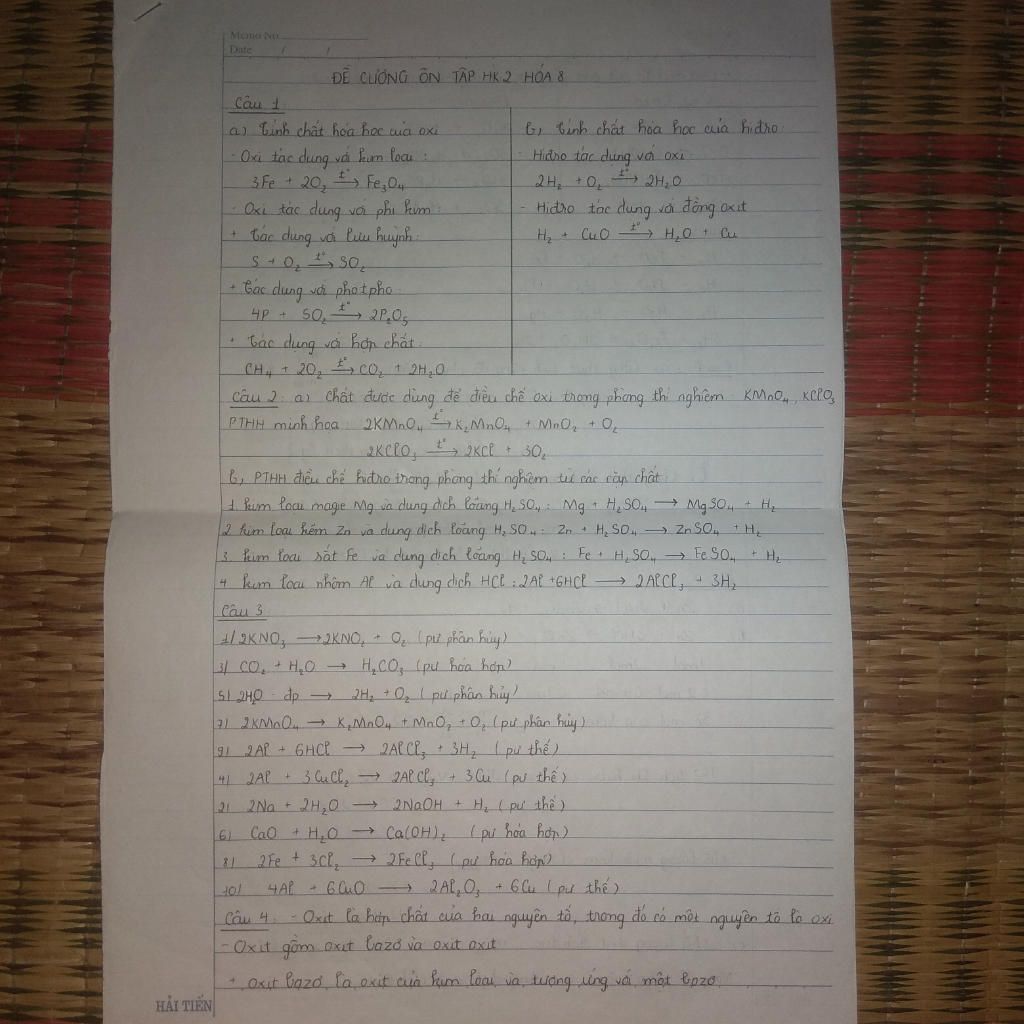 Memo No.
Date / /
ĐỀ CƯƠNG ÔN TẬP HK2 HÓA 8
Câu 1
a) Tính chất hóa học của oxi
- Oxi tác dụng với kim loại :
3Fe + 2O₂ →t° Fe₃O₄
- Oxi tác dụng với phi kim :
+ Tác dụng với lưu huỳnh:
S + O₂ →t° SO₂
+ Tác dụng với photpho:
4P + 5O₂ →t° 2P₂O₅
+ Tác dụng với hợp chất:
CH₄ + 2O₂ →t° CO₂ + 2H₂O
b, Tính chất hóa học của hiđro:
- Hiđro tác dụng với oxi:
2H₂ + O₂ →t° 2H₂O
- Hiđro tác dụng với đồng oxit
H₂ + CuO →t° H₂O + Cu
Câu 2: a) Chất được dùng để điều chế oxi trong phòng thí nghiệm: KMnO₄, KClO₃
PTHH minh họa: 2KMnO₄ →t° K₂MnO₄ + MnO₂ + O₂
2KClO₃ →t° 2KCl + 3O₂
b, PTHH điều chế hiđro trong phòng thí nghiệm từ các cặp chất:
1. kim loại magie Mg và dung dịch loãng H₂SO₄ : Mg + H₂SO₄ → MgSO₄ + H₂
2 kim loại kẽm Zn và dung dịch loãng H₂SO₄ : Zn + H₂SO₄ → ZnSO₄ + H₂
3. kim loại sắt Fe và dung dịch loãng H₂SO₄ : Fe + H₂SO₄ → FeSO₄ + H₂
4 kim loại nhôm Al và dung dịch HCl : 2Al + 6HCl → 2AlCl₃ + 3H₂
Câu 3
1) 2KNO₃ → 2KNO₂ + O₂ (pư phân hủy)
3) CO₂ + H₂O → H₂CO₃ (pư hóa hợp)
5) 2HO - đp → 2H₂ + O₂ (pư phân hủy)
7) 2KMnO₄ → K₂MnO₄ + MnO₂ + O₂ (pư phân hủy)
9) 2Al + 6HCl → 2AlCl₃ + 3H₂ (pư thế)
4) 2Al + 3CuCl₂ → 2AlCl₃ + 3Cu (pư thế)
2) 2Na + 2H₂O → 2NaOH + H₂ (pư thế)
6) CaO + H₂O → Ca(OH)₂ (pư hóa hợp)
8) 2Fe + 3Cl₂ → 2FeCl₃ (pư hóa hợp)
10) 4Al + 6CuO → 2Al₂O₃ + 6Cu (pư thế)
Câu 4: - Oxit là hợp chất của hai nguyên tố, trong đó có một nguyên tố là oxi
- Oxit gồm oxit bazơ và oxit oxit
+ oxit bazơ là oxit của kim loại và tương ứng với một bazơ
HẢI TIẾN